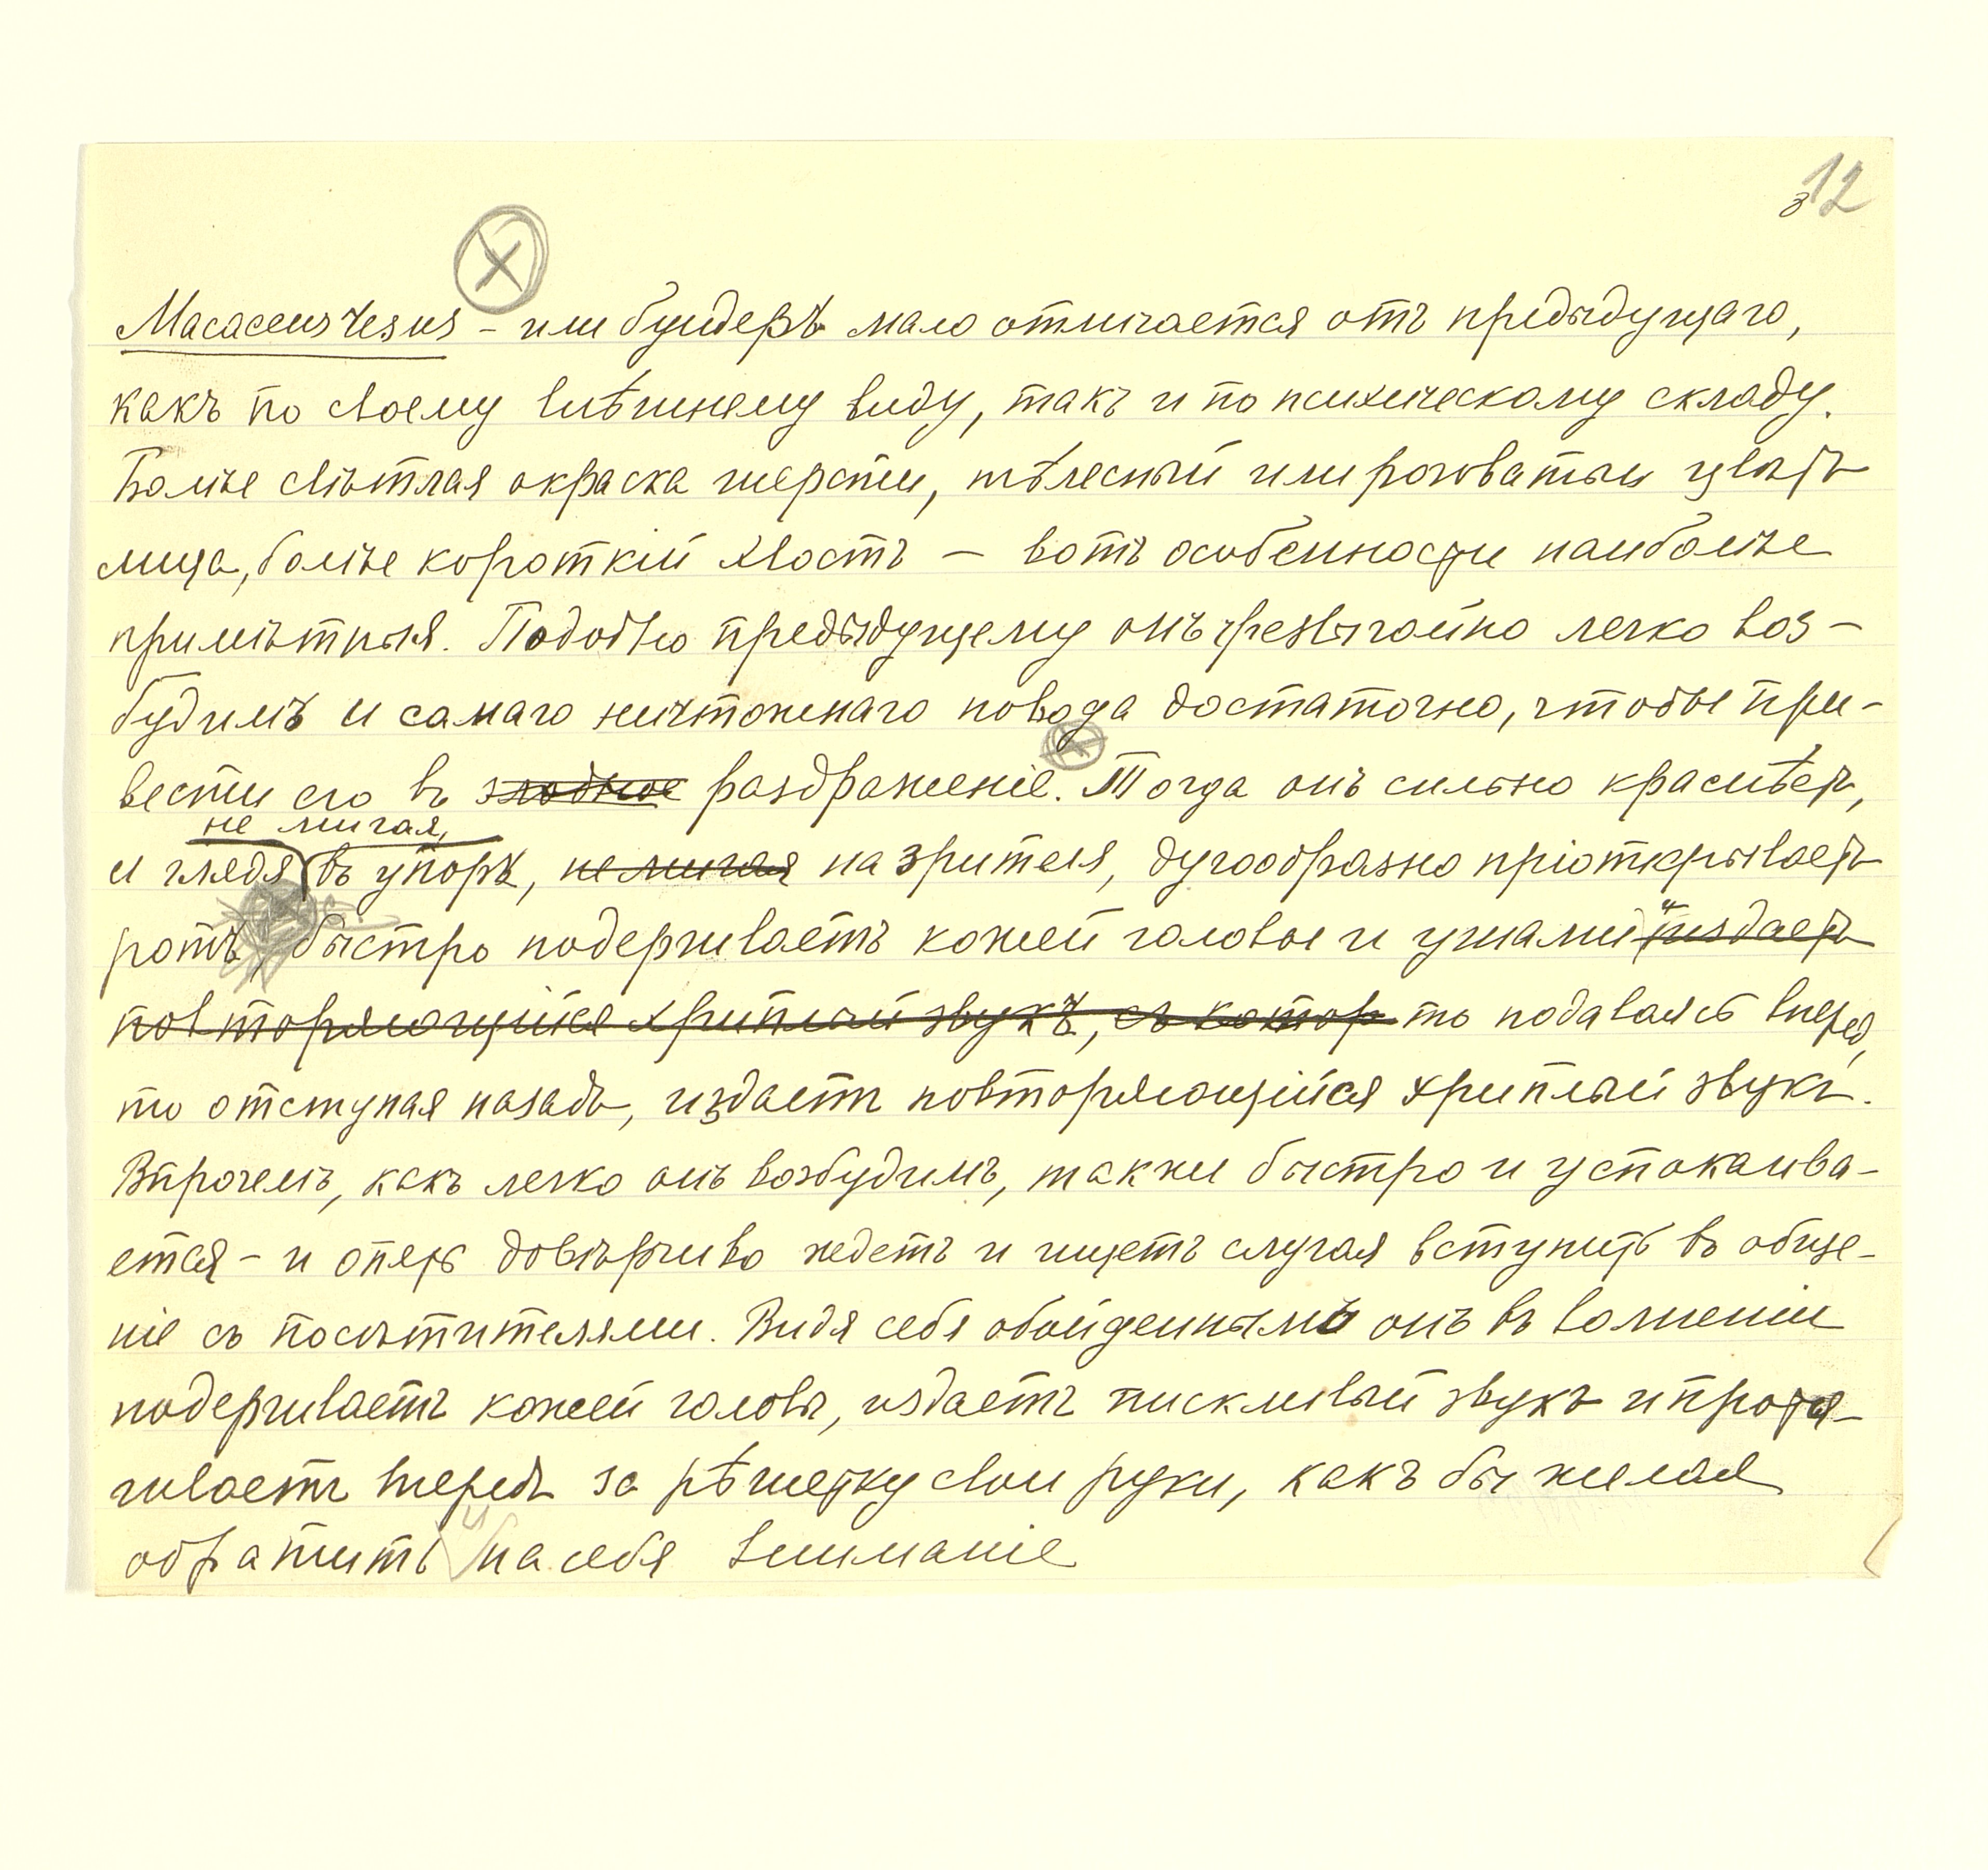 12
3
Macaccus resus – или бундеръ мало отличается отъ предыдущаго,
какъ по своему внѣшнему виду, такъ и по психическому складу.
Болѣе свѣтлая окраска шерсти, тѣлесный или розоватый цвѣтъ
лица, болѣе короткій хвостъ – вотъ особенности наиболѣе
примѣтныя. Подобно предыдущему онъ чрезвычайно легко воз-
будимъ и самаго ничтожнаго повода достаточно, чтобы при-
вести его въ злобное раздраженіе. Тогда онъ сильно краснѣетъ,
не мигая,
и глядя въ упоръ, не мигая на зрителя, дугообразно пріоткрываетъ
ротъ, быстро подергиваетъ кожей головы и ушами и издаетъ
повторяющійся хриплый звукъ, съ котор то подаваясь впередъ,
то отступая назадъ, издаетъ повторяющійся хриплый звукъ.
Впрочемъ, какъ легко онъ возбудимъ, такжи быстро и успокаива-
ется – и опять довѣрчиво ждетъ и ищетъ случая вступить въ обще-
ніе съ посѣтителями. Видя себя обойденнымъ онъ въ волненіи
подергиваетъ кожей головы, издаетъ пискливый звукъ и протя-
гиваетъ впередъ за рѣшетку свои руки, какъ бы желая
обратить на себя вниманіе